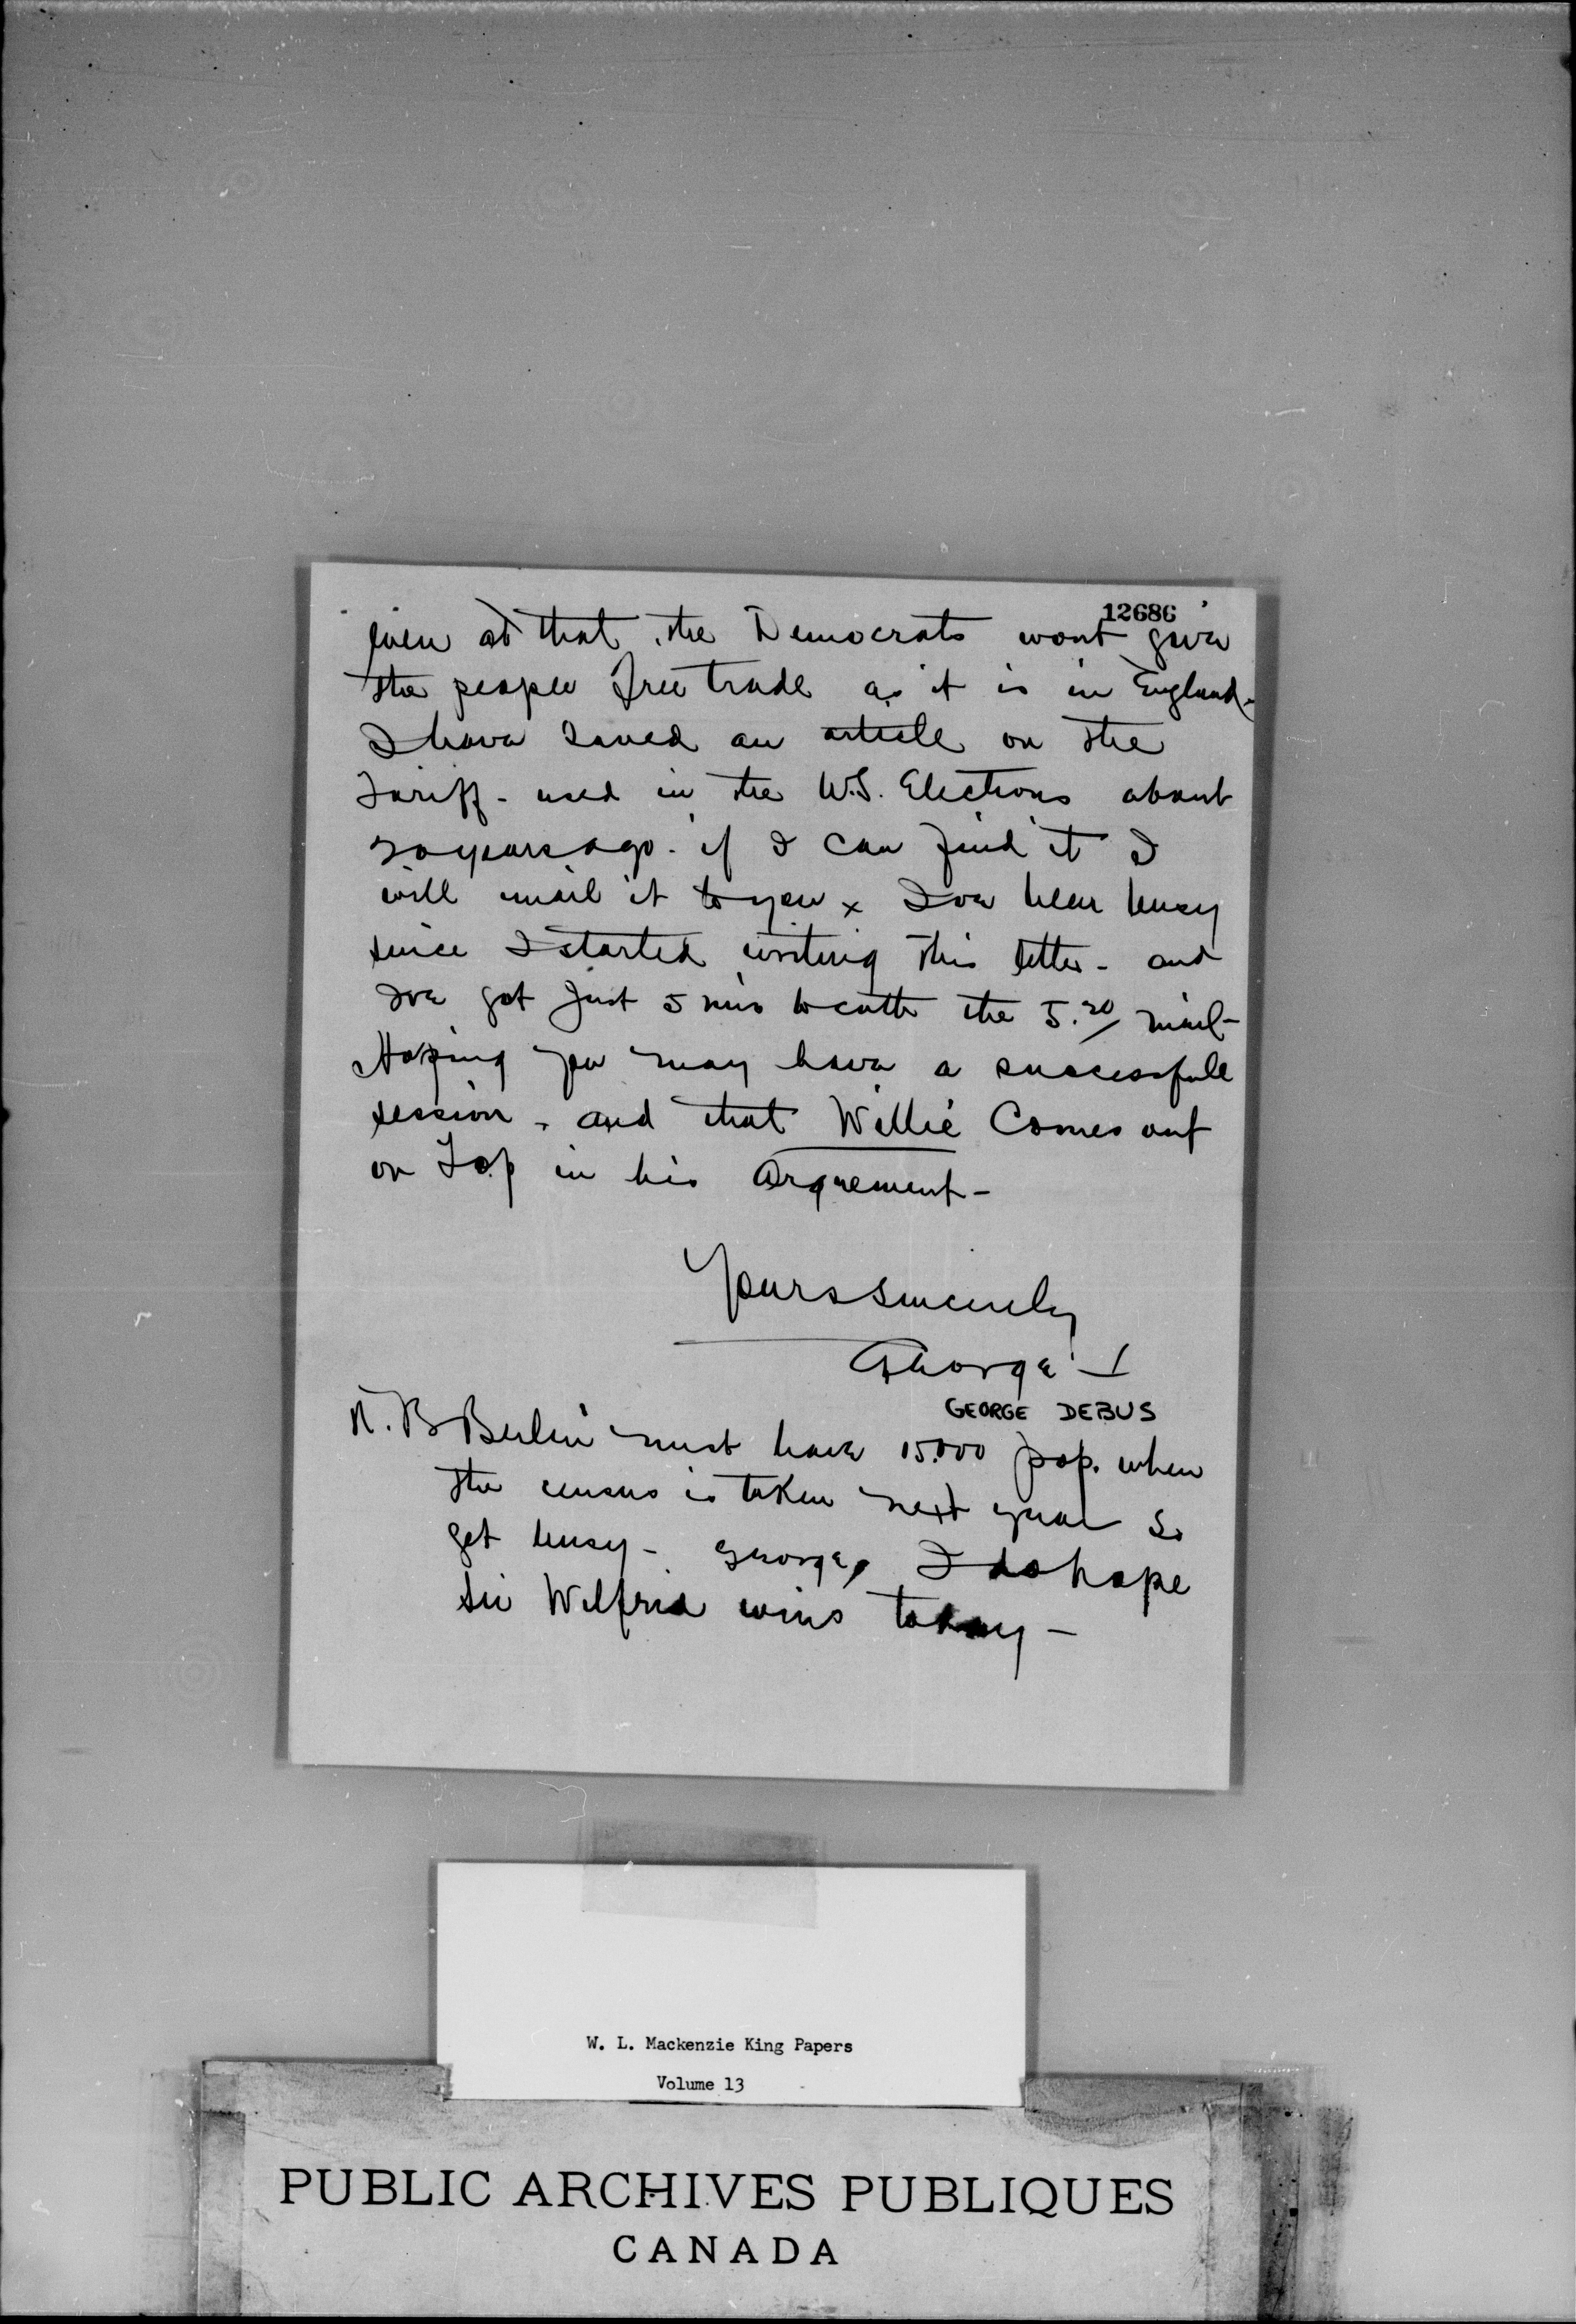 12686
even at that, the Democrats wont give
the people free trade as it is in England -
I have saved an article on the
Tariff - used in the U.S. Elections about
20 years ago - if I can find it I
will mail it to you x Ive been busy
since I started writing this letter - and
Ive got just 5 mins to catch the 5.20 mail -
Hoping you may have a successfull
session - and that Willie Comes out
on Top in his Arguement -
Yours sincerely
George
GEORGE DEBUS
N.B Berlin must have 15.000 pop. when
the census is taken next year so
get busy - George, I do hope
Sir Wilfrid wins today -
W. L. Mackenzie King Papers
Volume 13
PUBLIC ARCHIVES PUBLIQUES
CANADA